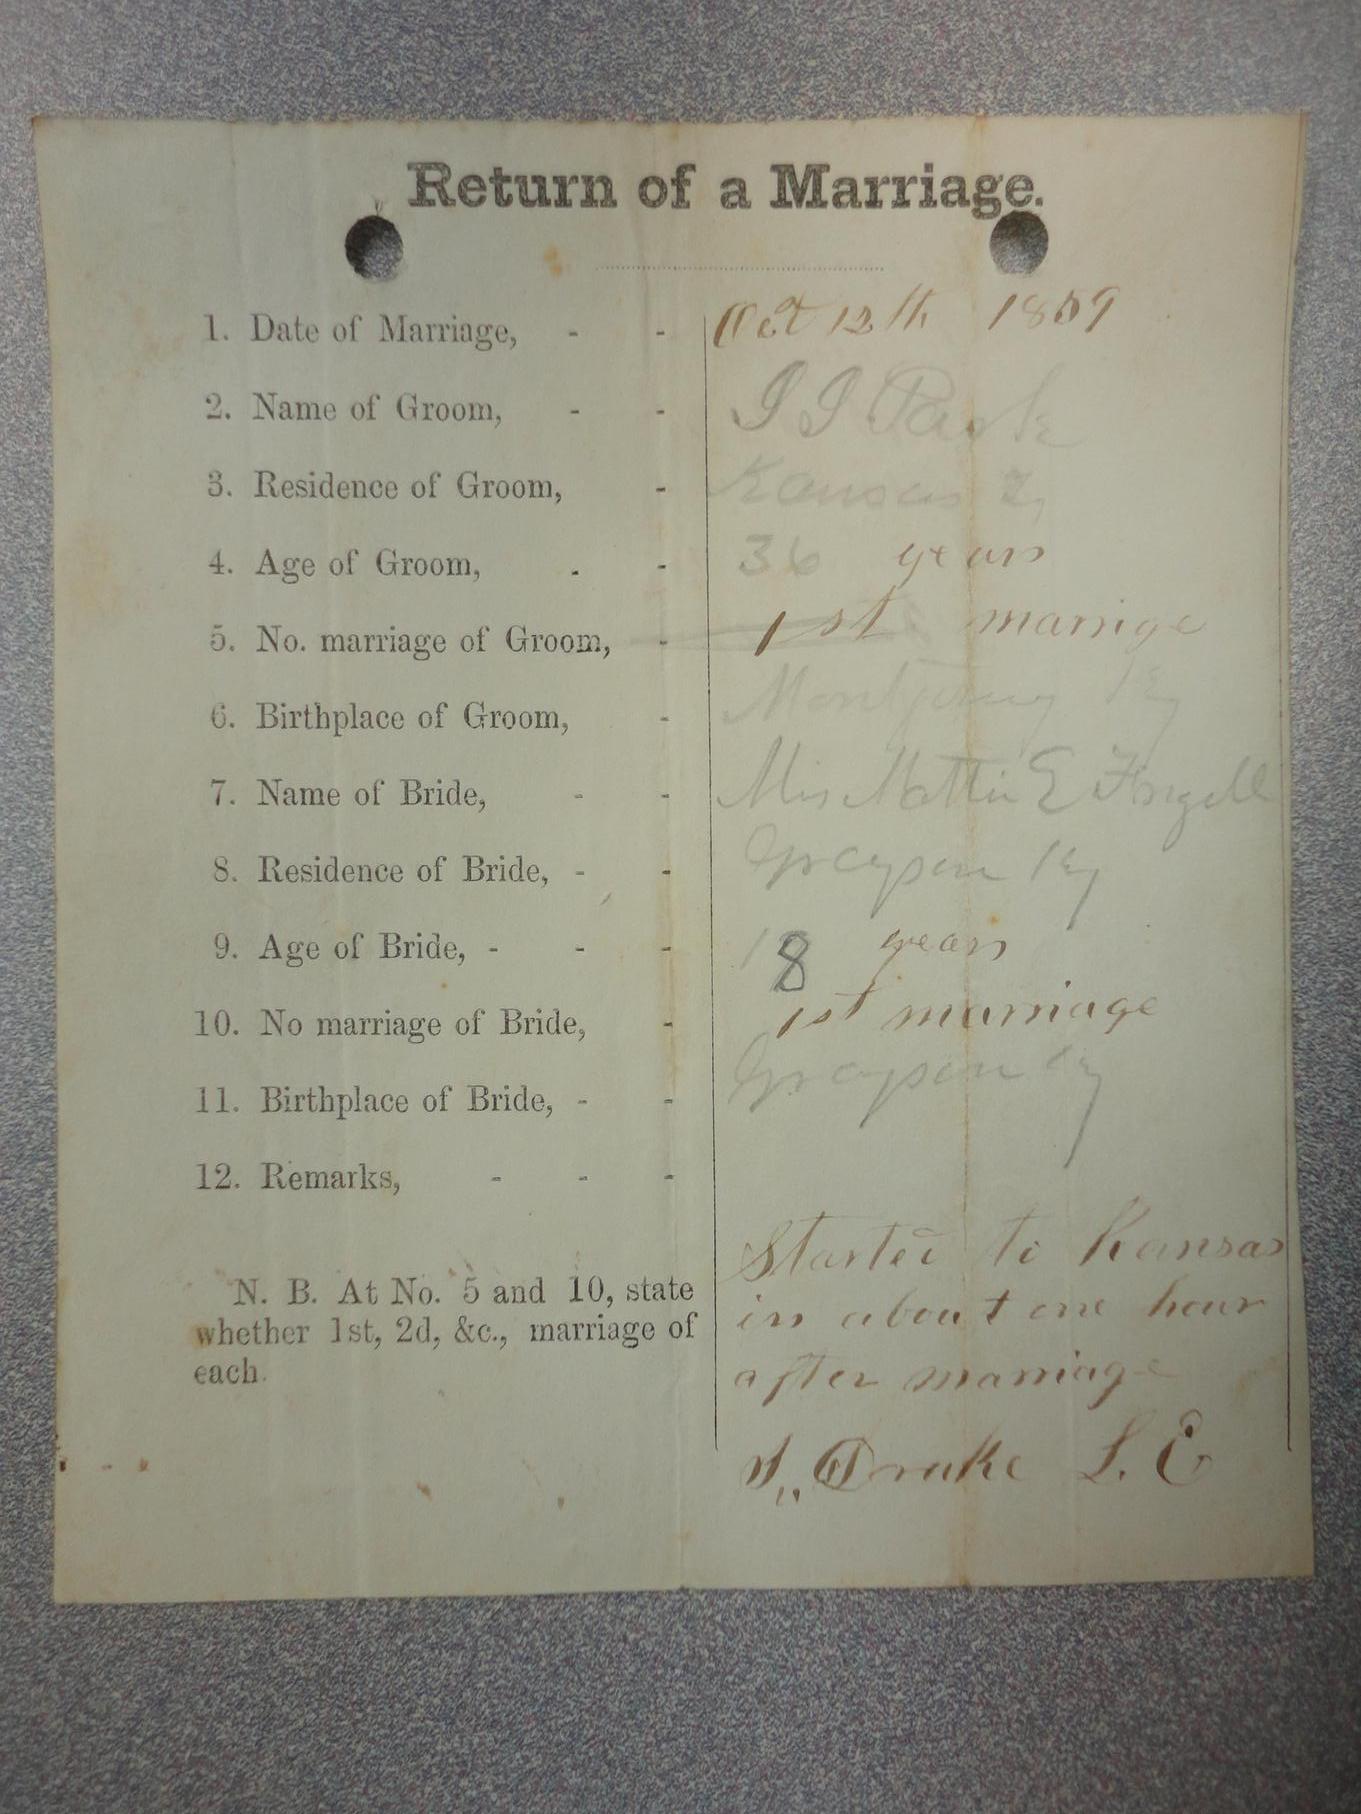 Return of a Marriage.
1. Date of Marriage, - - Oct 12th 1859
2. Name of Groom, - -
3. Residence of Groom, - Kansas
4. Age of Groom, - - 36 years
5. No. marriage of Groom, - 1st marrige
6. Birthplace of Groom, - Ky
7. Name of Bride, - - Miss Mattie E
8. Residence of Bride, - - Grayson Ky
9. Age of Bride, - - - 18 years
10. No marriage of Bride, - 1st marriage
11. Birthplace of Bride, - - Grayson Ky
12. Remarks, - - -
Started to Kansas
N. B. At No. 5 and 10, state
whether 1st, 2d, &c., marriage of
each.
in about one hour
after marriage
S,, Drake L. E